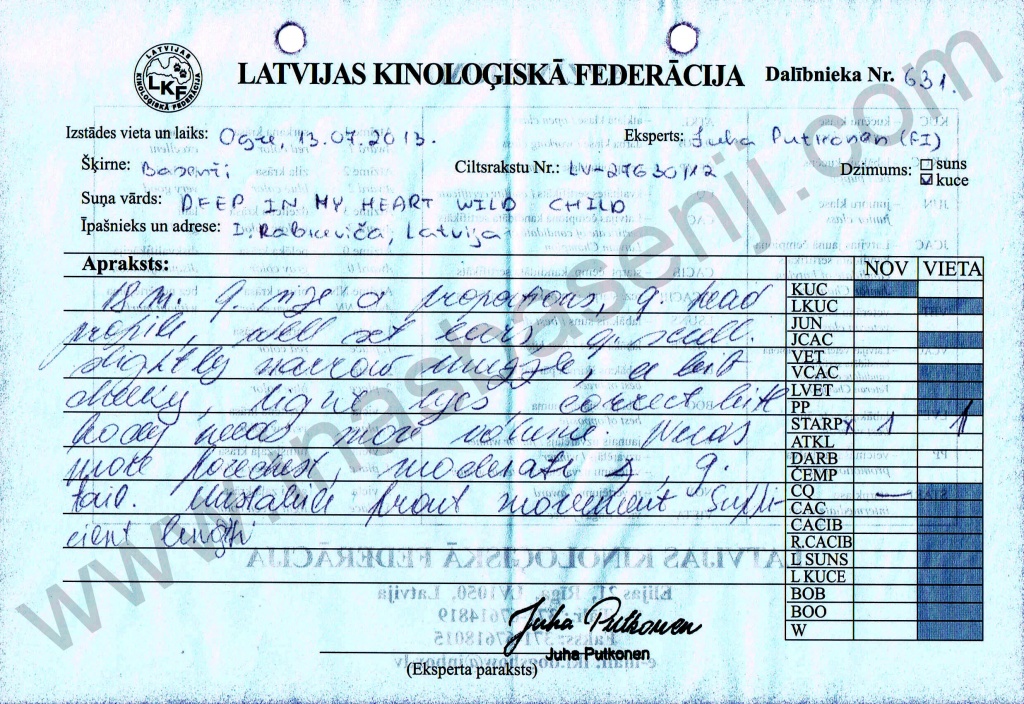 LATVIJAS KINOLOĢISKĀ FEDERĀCIJA
LKF
LATVIJAS KINOLOĢISKĀ FEDERĀCIJA Dalībnieka Nr. 631.
Izstādes vieta un laiks: Ogre, 13.07.2013. Eksperts: Juha Putkonen (FI)
Šķirne: Basenji Ciltsrakstu Nr.: LV-27630/12 Dzimums: suns
kuce
Suņa vārds: DEEP IN MY HEART WILD CHILD
Īpašnieks un adrese: Latvija
Apraksts: NOV VIETA
18 m. g. size & proportions, g. head
profile, well set ears, g. scull.
slightly narrow muzzle, a bit
cheeky, light eyes, correct bite
body needs more volume. Needs
more forechest, moderate g.
tail. Unstabile front movement suffi-
cient length
KUC
LKUC
JUN
JCAC
VET
VCAC
LVET
PP
STARP x 1 1
ATKL
DARB
ČEMP
CQ —
CAC
CACIB
R.CACIB
L SUNS
L KUCE
BOB
BOO
W
Juha Putkonen
Juha Putkonen
(Eksperta paraksts)
LATVIJAS KINOLOĢISKĀ FEDERĀCIJA
Elijas 21, Rīga, LV1050, Latvija
www.nasbasenji.com